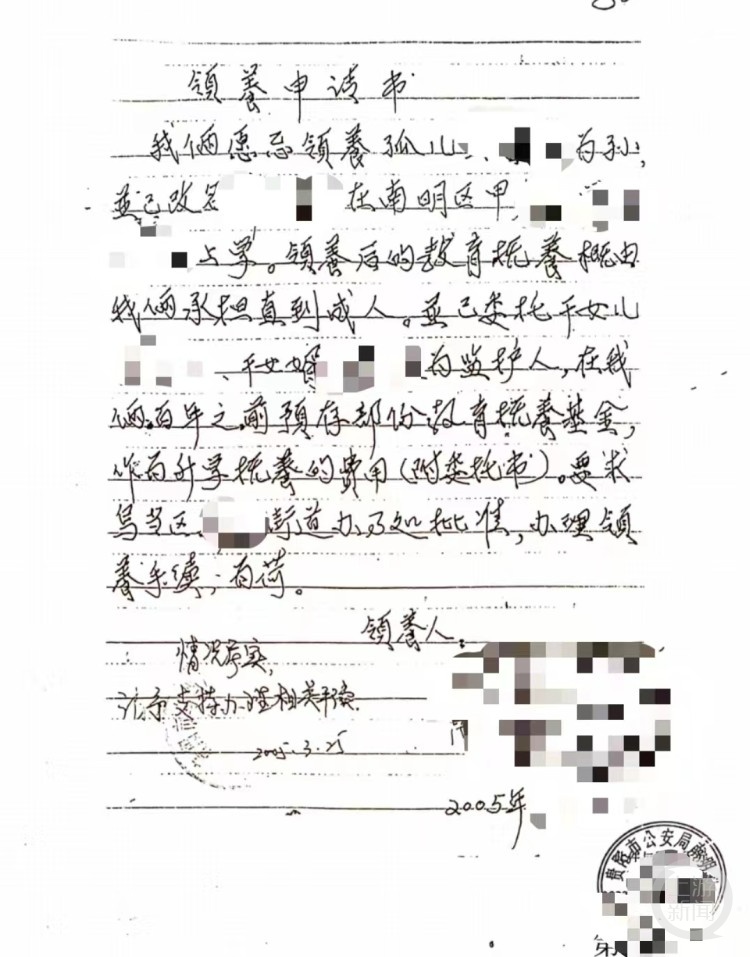 领養申请书
我俩愿意领養孤儿 为孙,
並已改名 在南明区甲
上学。领養后的教育抚養概由
我俩承担直到成人。並已委托干女儿
、干女婿 为监护人,在我
俩百年之前预存部份教育抚養基金,
作为升学抚養的费用(附委托书)。要求
乌当区 街道办事处批准,办理领
養手续;为荷。
领養人:
情况属实,
请予支持办理相关手续.
2005.3.25
2005年
贵阳市公安局南明
上游新闻
第